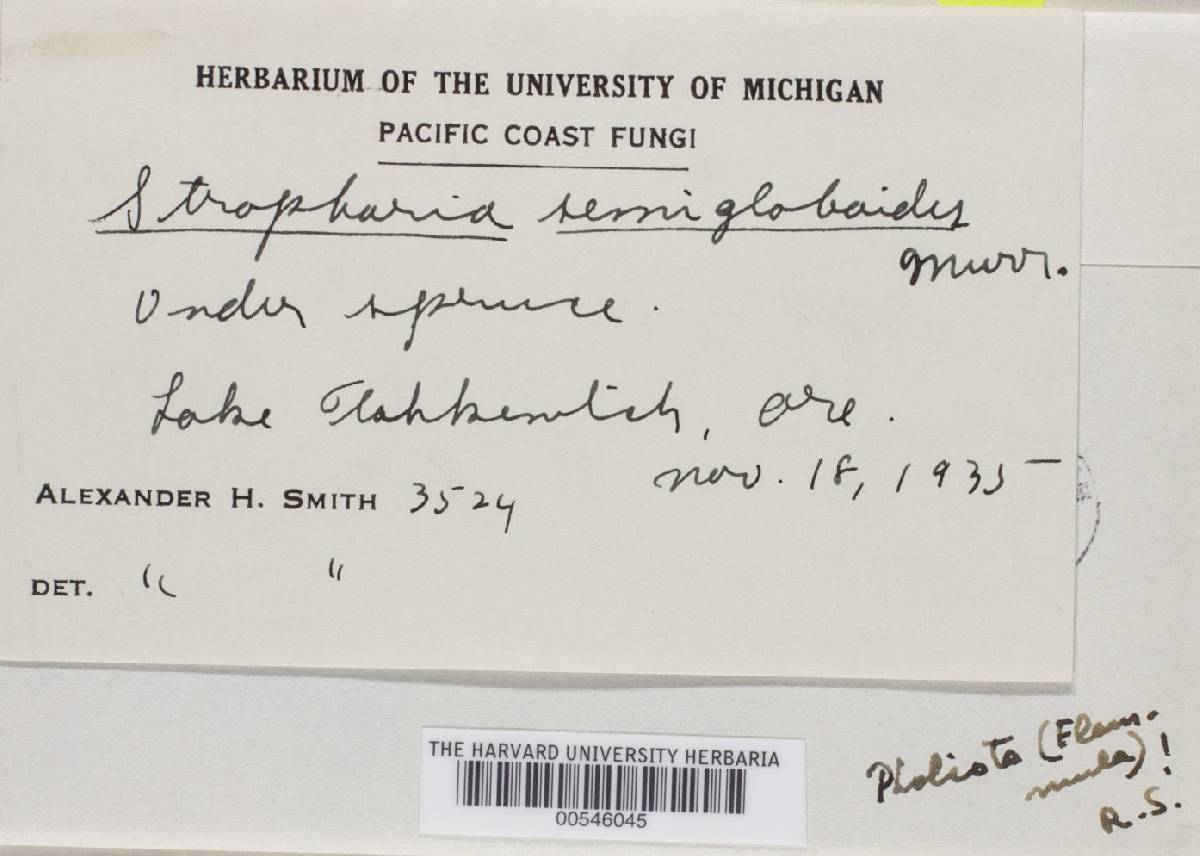 HERBARIUM OF THE UNIVERSITY OF MICHIGAN
PACIFIC COAST FUNGI
Stropharia semigloboides
Murr.
Under spruce.
Lake Tahkenitch, Ore.
Nov. 18, 1935
ALEXANDER H. SMITH 3524
DET. " "
THE HARVARD UNIVERSITY HERBARIA
00546045
Pholiota (Flam-
mula)!
R.S.